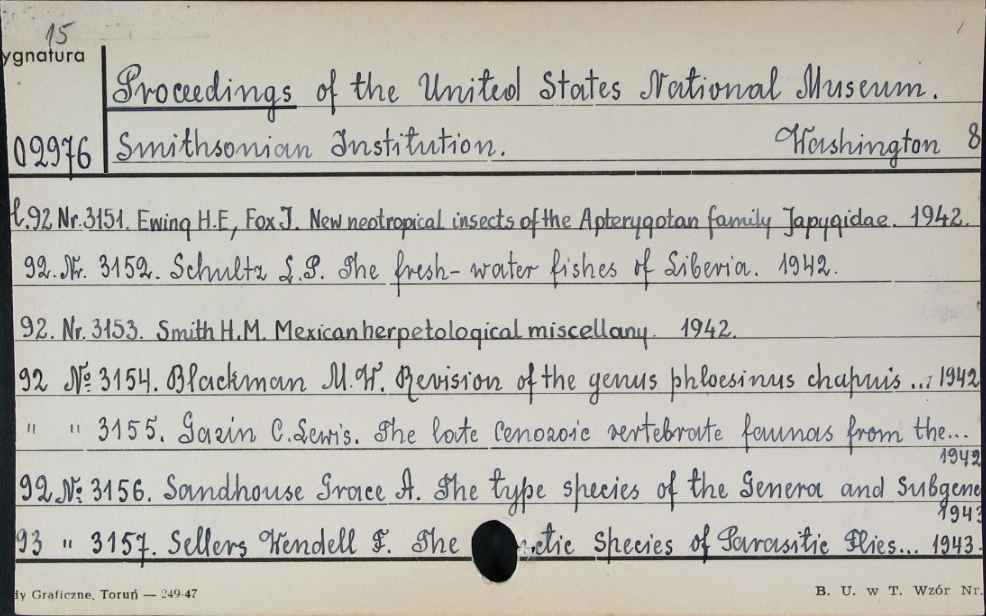 15
ygnatura
Proceedings of the United States National Museum.
02976 Smithsonian Institution. Washington 8
t.92 Nr.3151. Ewing H.E, Fox J. New neotropical insects of the Apterygotan family Japygidae. 1942.
92. Nr. 3152. Schultz L.P. The fresh-water fishes of Liberia. 1942.
92. Nr. 3153. Smith H.M. Mexican herpetological miscellany. 1942.
92 № 3154. Blackman M.W. Revision of the genus phloesinus chapuis ... 1942
" " 3155. Gazin C. Lewis. The late Cenozoic vertebrate faunas from the...
1942
92 № 3156. Sandhouse Grace A. The type species of the Genera and Subgene
1943
93 " 3157. Sellers Wendell F. The ctic Species of Parasitic Flies... 1943.
dy Graficzne, Toruń — 249-47
B. U. w T. Wzór Nr.